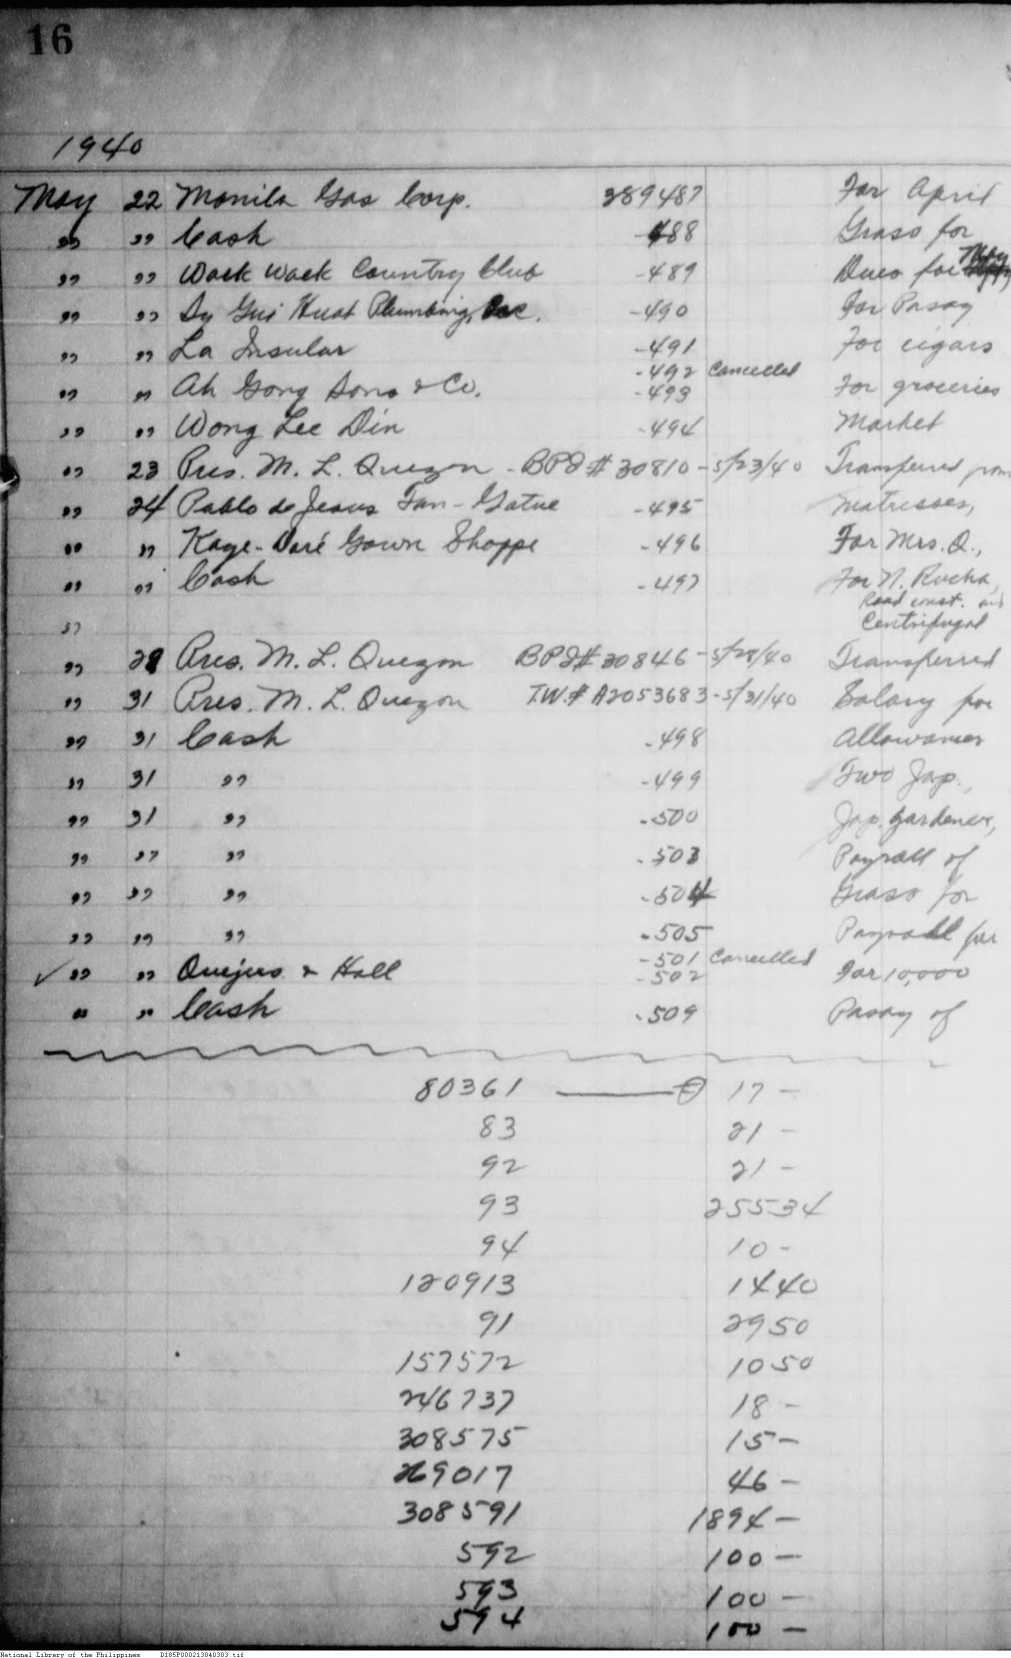 16
1940
May 22 Manila Gas Corp. 289487 For April
" " Cash -488 Grass for
" " Wack Wack Country Club -489 Dues for May
" " Sy Gui Huat Plumbing, Inc. -490 For Pasay
" " La Insular -491 For cigars
-492 Cancelled
" " Ah Gong Sons & Co. -493 For groceries
" " Wong Lee Din -494 Market
" 23 Pres. M. L. Quezon - BPI # 30810 - 5/23/40 Transferred from
" 24 Pablo de Jesus Tan-Gatue -495 Matresses,
" " Kaye-Daré Gown Shoppe -496 For Mrs. Q.,
" " Cash -497 For N. Rocha,
Road const. and
" Centrifugal
" 28 Pres. M. L. Quezon BPI # 30846 - 5/28/40 Transferred
" 31 Pres. M. L. Quezon T.W. # A2053683 - 5/31/40 Salary for
" 31 Cash -498 Allowances
" 31 " -499 Two Jap.,
" 31 " -500 Jap. gardener,
" " " -503 Payroll of
" " " -504 Grass for
" " " -505 Payroll for
-501 Cancelled
✓ " " Quejus & Hall -502 For 10,000
" " Cash -509 Pasay of
80361 17 -
83 21 -
92 21 -
93 255 34
94 10 -
120913 14 40
91 29 50
157572 10 50
246737 18 -
308575 15 -
269017 46 -
308591 1894 -
592 100 -
593 100 -
594 100 -
National Library of the Philippines D185P000213040303.tif